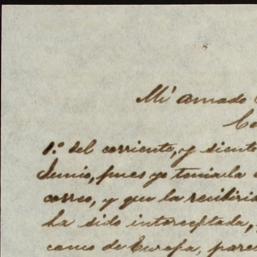 Mi amado
1.º del corriente, y siento
Junio, pues yo temia la
correo, y que la recibiria
ha sido interceptada,
como de Europa, pare